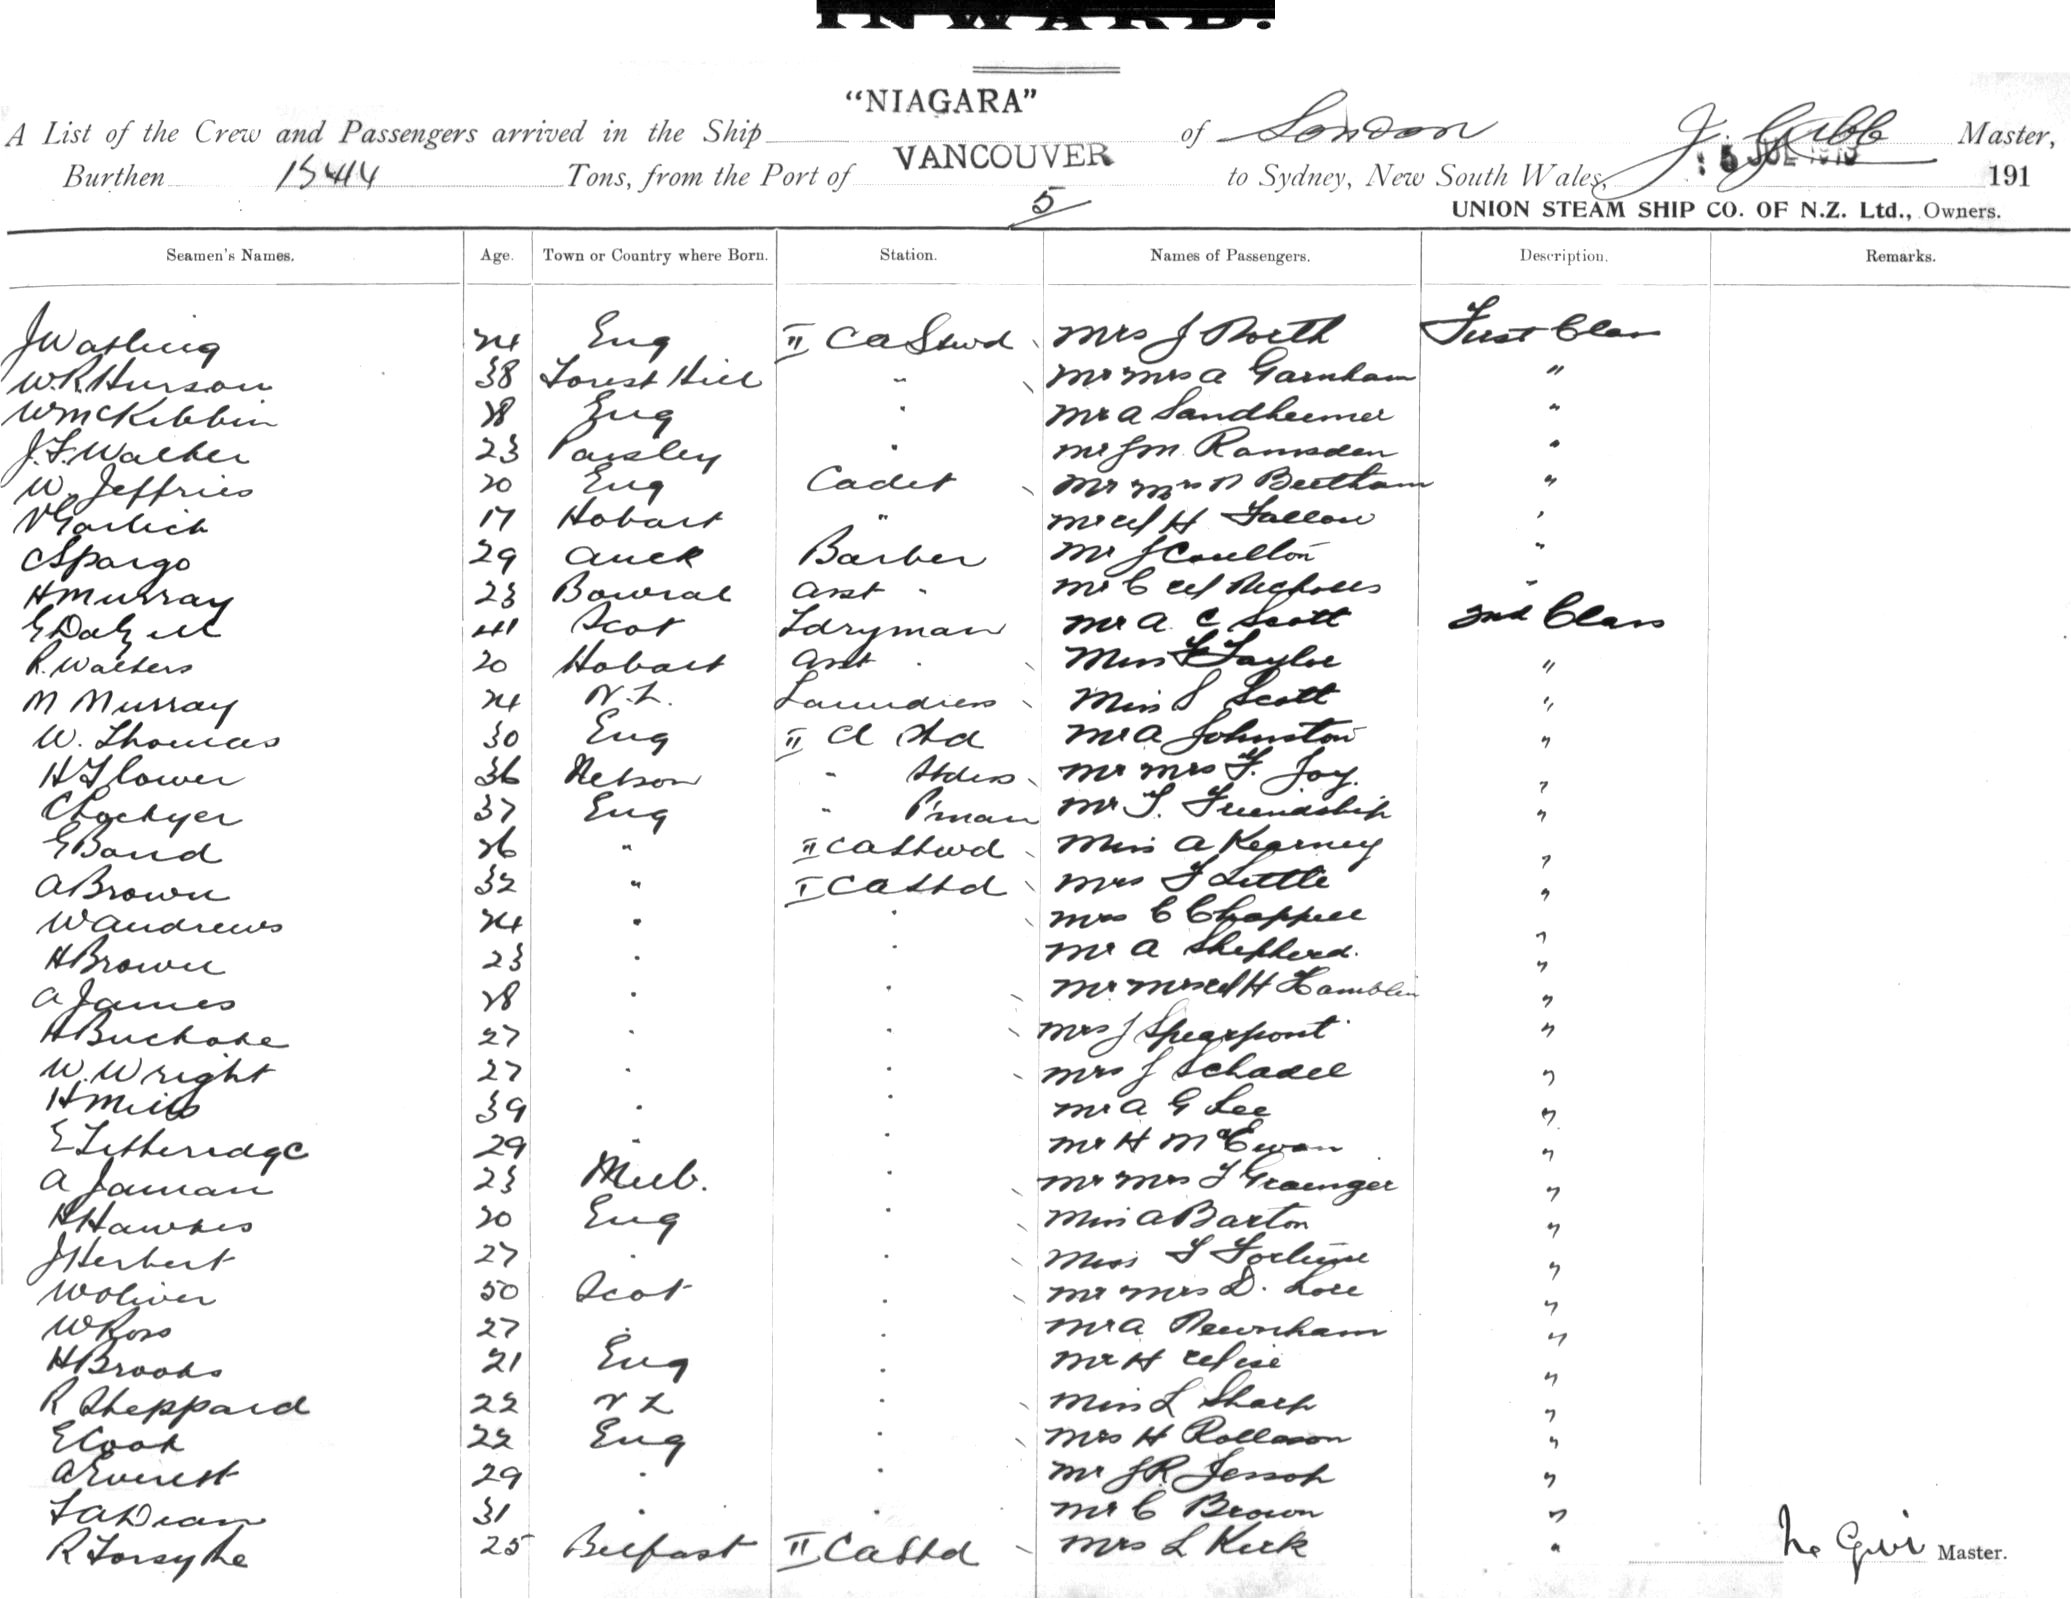 INWARD.
"NIAGARA"
A List of the Crew and Passengers arrived in the Ship of London J. Gibb Master,
VANCOUVER
Burthen 13414 Tons, from the Port of to Sydney, New South Wales, 5 JUL 1913 191
5
UNION STEAM SHIP CO. OF N.Z. Ltd., Owners.
Seamen's Names. Age. Town or Country where Born. Station. Names of Passengers. Description. Remarks.
J Watling 24 Eng II Ca Stwd Mrs J North First Class
W.R. Hurson 38 Forest Hill " Mr Mrs A Garnham "
W McKibbin 28 Eng " Mr A Sandheimer "
J.F. Walker 23 Paisley " Mr J M Ramsden "
W. Jeffries 20 Eng Cadet Mr Mrs N Beetham "
V Garlick 17 Hobart " Mr W H Fallow "
C Spargo 29 Auck Barber Mr J Coulton "
H Murray 23 Bowral Asst " Mr C W Nicholls "
G Dalzell 41 Scot Ldryman Mr A. C Scott 2nd Class
R. Walters 20 Hobart Asst " Miss F Taylor "
M Murray 24 N.Z. Laundress Miss S Scott "
W. Thomas 30 Eng II Cl Std Mr A Johnston "
H Flower 36 Nelson " Stdess Mr Mrs F. Joy. "
C Lockyer 37 Eng " P'man Mr T. Friendship "
G Bond 26 " II Ca Stwd Miss A Kearney "
A Brown 32 " I Ca Std Mrs F Little "
W Andrews 24 " " Mrs C Chappell "
H Brown 23 " " Mr A Shepherd. "
A James 28 " " Mr Mrs W H Hamblin "
H Buckoke 27 " " Mrs J Spearpoint "
W. Wright 27 " " Mrs J Schadel "
H Mills 39 " " Mr A G Lee "
E Titheridge 29 " " Mr H McEwan "
A Jaman 23 Melb. " Mr Mrs T Grainger "
H Hawkes 20 Eng " Miss A Barton "
J Herbert 27 " " Miss F Fortune "
W Oliver 50 Scot " Mr Mrs D. "
W Ross 27 " " Mr A Newnham "
H Brooks 21 Eng " Mr H Wise "
R Sheppard 22 N Z " Miss L Sharp "
E Cook 22 Eng " Mrs H Rollason "
A Everest 29 " " Mr J R. Jessop "
F A Dean 31 " " Mr C Brown "
R Forsythe 25 Belfast II Ca Std Mrs L Kirk " Master.